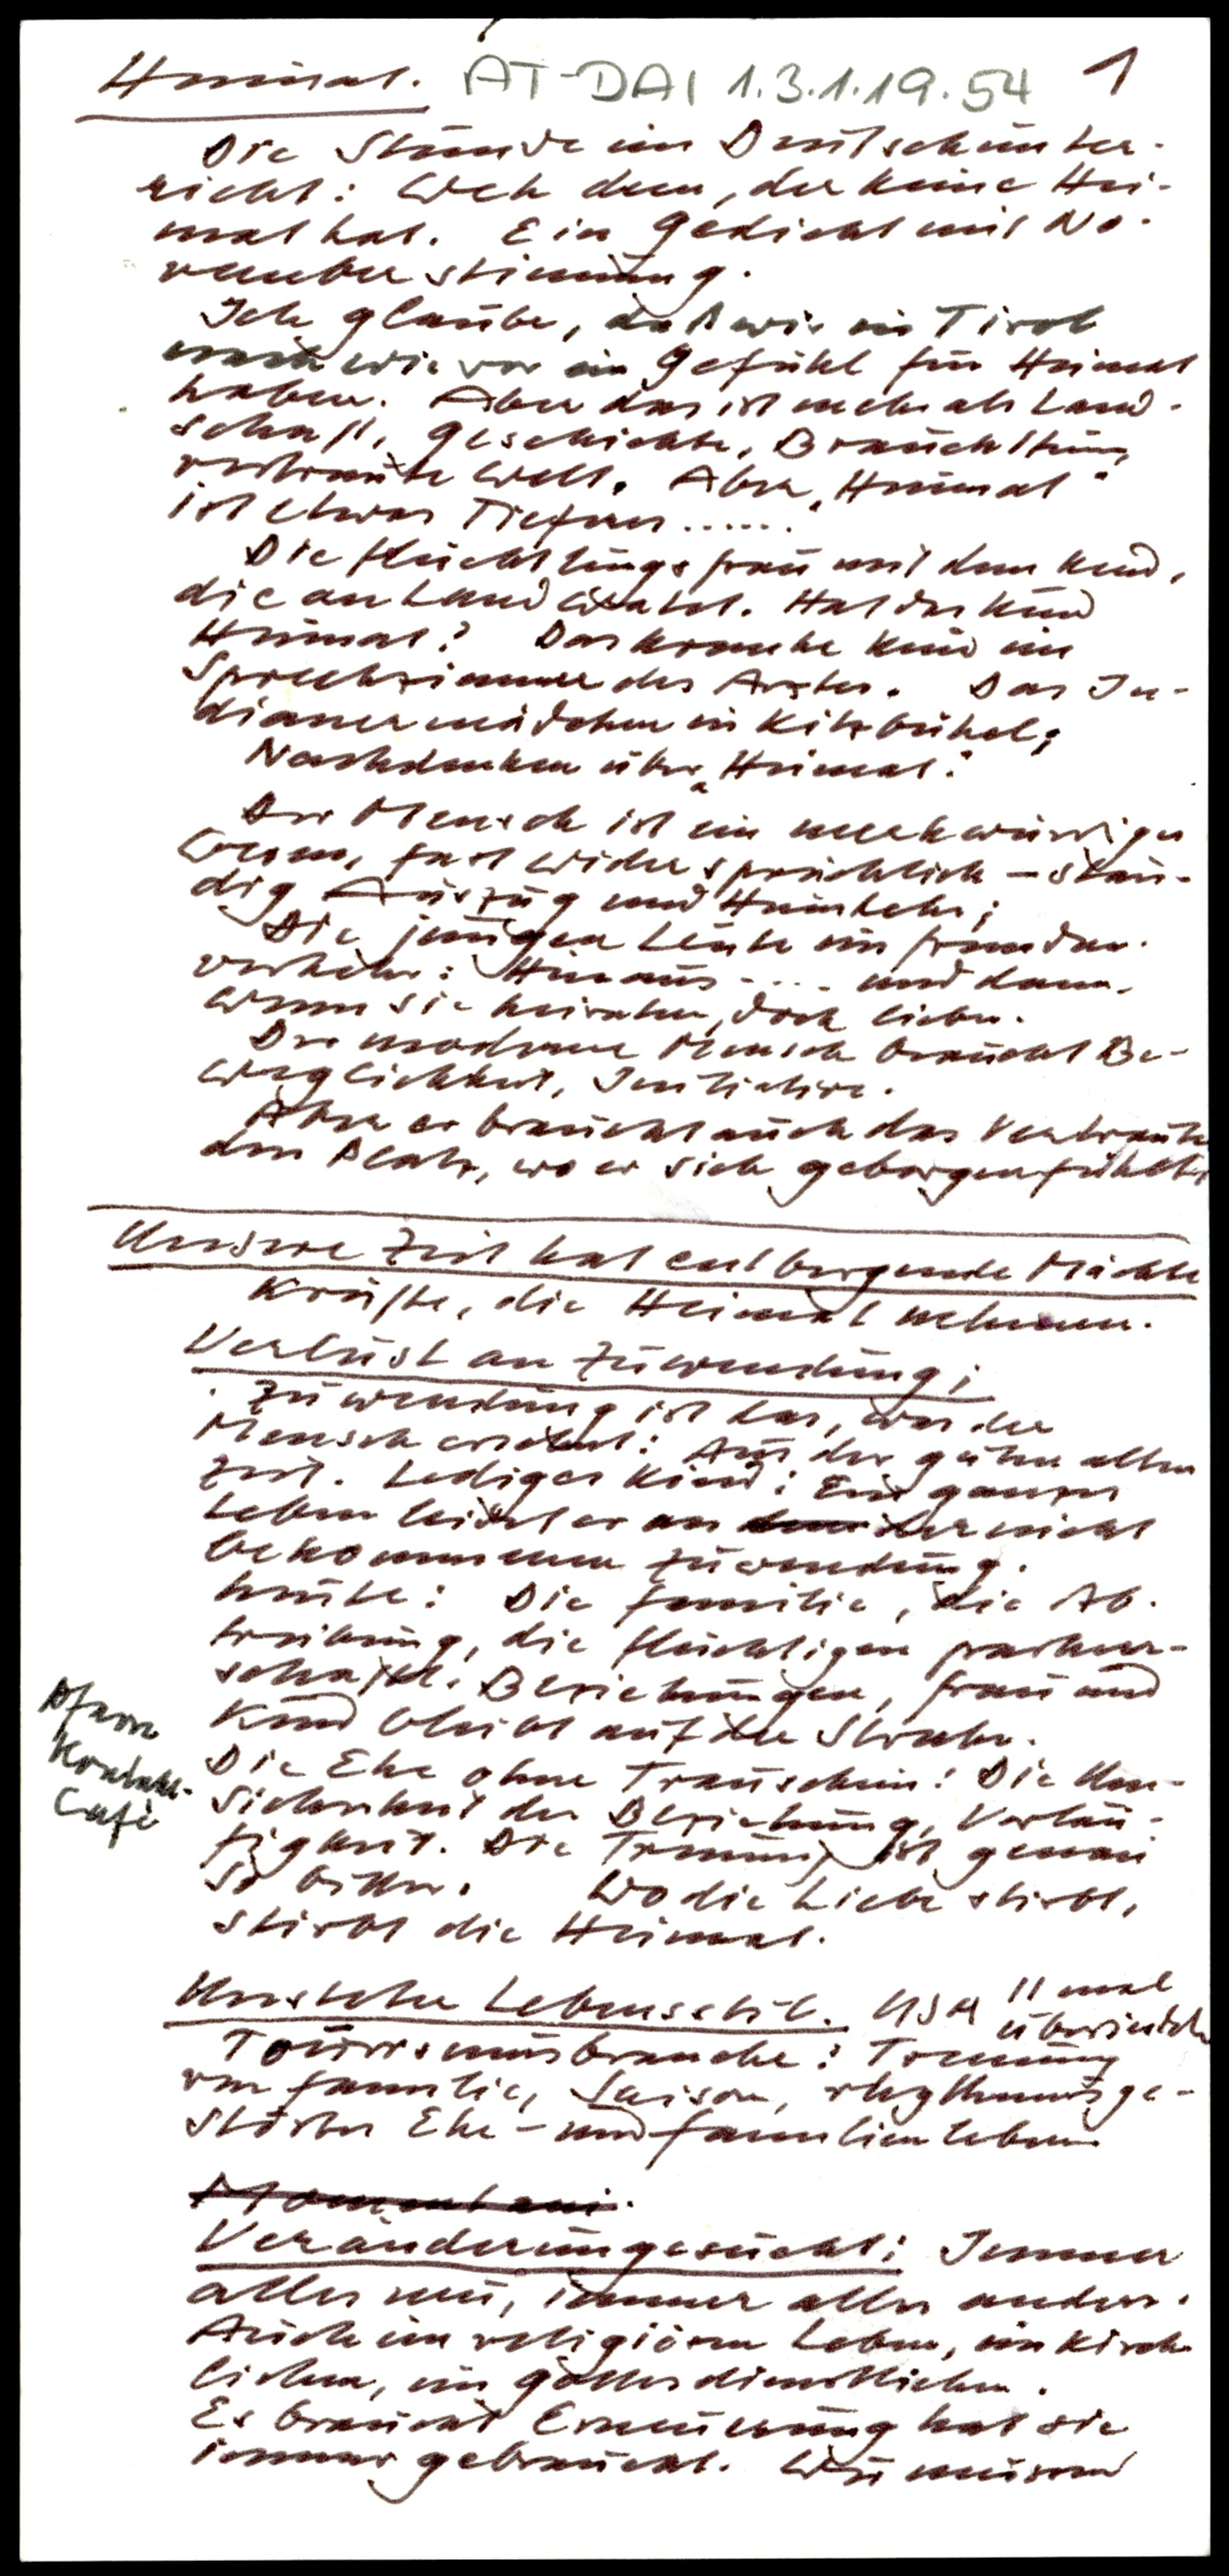 Heimat. AT-DAI 1.3.1.19.54 1
Die Stunde im Deutschunter-
richt: Weh dem, der keine Hei-
mat hat. Ein Gedicht mit No-
vemberstimmung.
Ich glaube, daß wir in Tirol
nach wie vor ein Gefühl für Heimat
haben. Aber das ist mehr als Land-
schaft, Geschichte, Brauchtum,
vertraute Welt. Aber „Heimat"
ist etwas Tieferes......
Die Flüchtlingsfrau mit dem Kind,
die an Land watet. Hat das Kind
Heimat? Das kranke Kind im
Sprechzimmer des Arztes. Das In-
dianermädchen in Kitzbühel;
Nachdenken über „Heimat".
Der Mensch ist ein merkwürdiges
Wesen, fast widersprüchlich – stän-
dig Auszug und Heimkehr;
Die jungen Leute im Fremden-
verkehr: Hinaus .... und dann,
wenn sie heiraten, doch lieber.
Der moderne Mensch braucht Be-
weglichkeit, Initiative.
Aber er braucht auch das Vertraute
den Platz, wo er sich geborgen fühlt.
Unsere Zeit hat entbergende Mächte
Kräfte, die Heimat nehmen.
Verlust an Zuwendung;
Zuwendung ist das, was der
Mensch ersehnt: Aus der guten alten
Zeit. Lediges Kind: Ein ganzes
Leben leidet er an der nicht
bekommenen Zuwendung.
heute: Die Familie, die Ab-
treibung, die flüchtigen partner-
schaftl. Beziehungen, Frau und
Kind bleibt auf der Strecke.
Die Ehe ohne Trauschein: Die Un-
sicherheit der Beziehung, Vorläu-
figkeit. Die Trennung ist genau
so bitter. Wo die Liebe stirbt,
stirbt die Heimat.
Pfarre
Kontakt-
Café
Unsteter Lebensstil. USA 11 mal
übersiedeln
Tourismusbranche: Trennung
von Familie, Saison, rhythmusge-
störtes Ehe- und Familienleben
Momentani.
Veränderungssucht: Immer
alles neu, immer alles anders.
Auch im religiösen Leben, im kirch-
lichen, im gottesdienstlichen.
Es braucht Erneuerung hat sie
immer gebraucht. Wir müssen